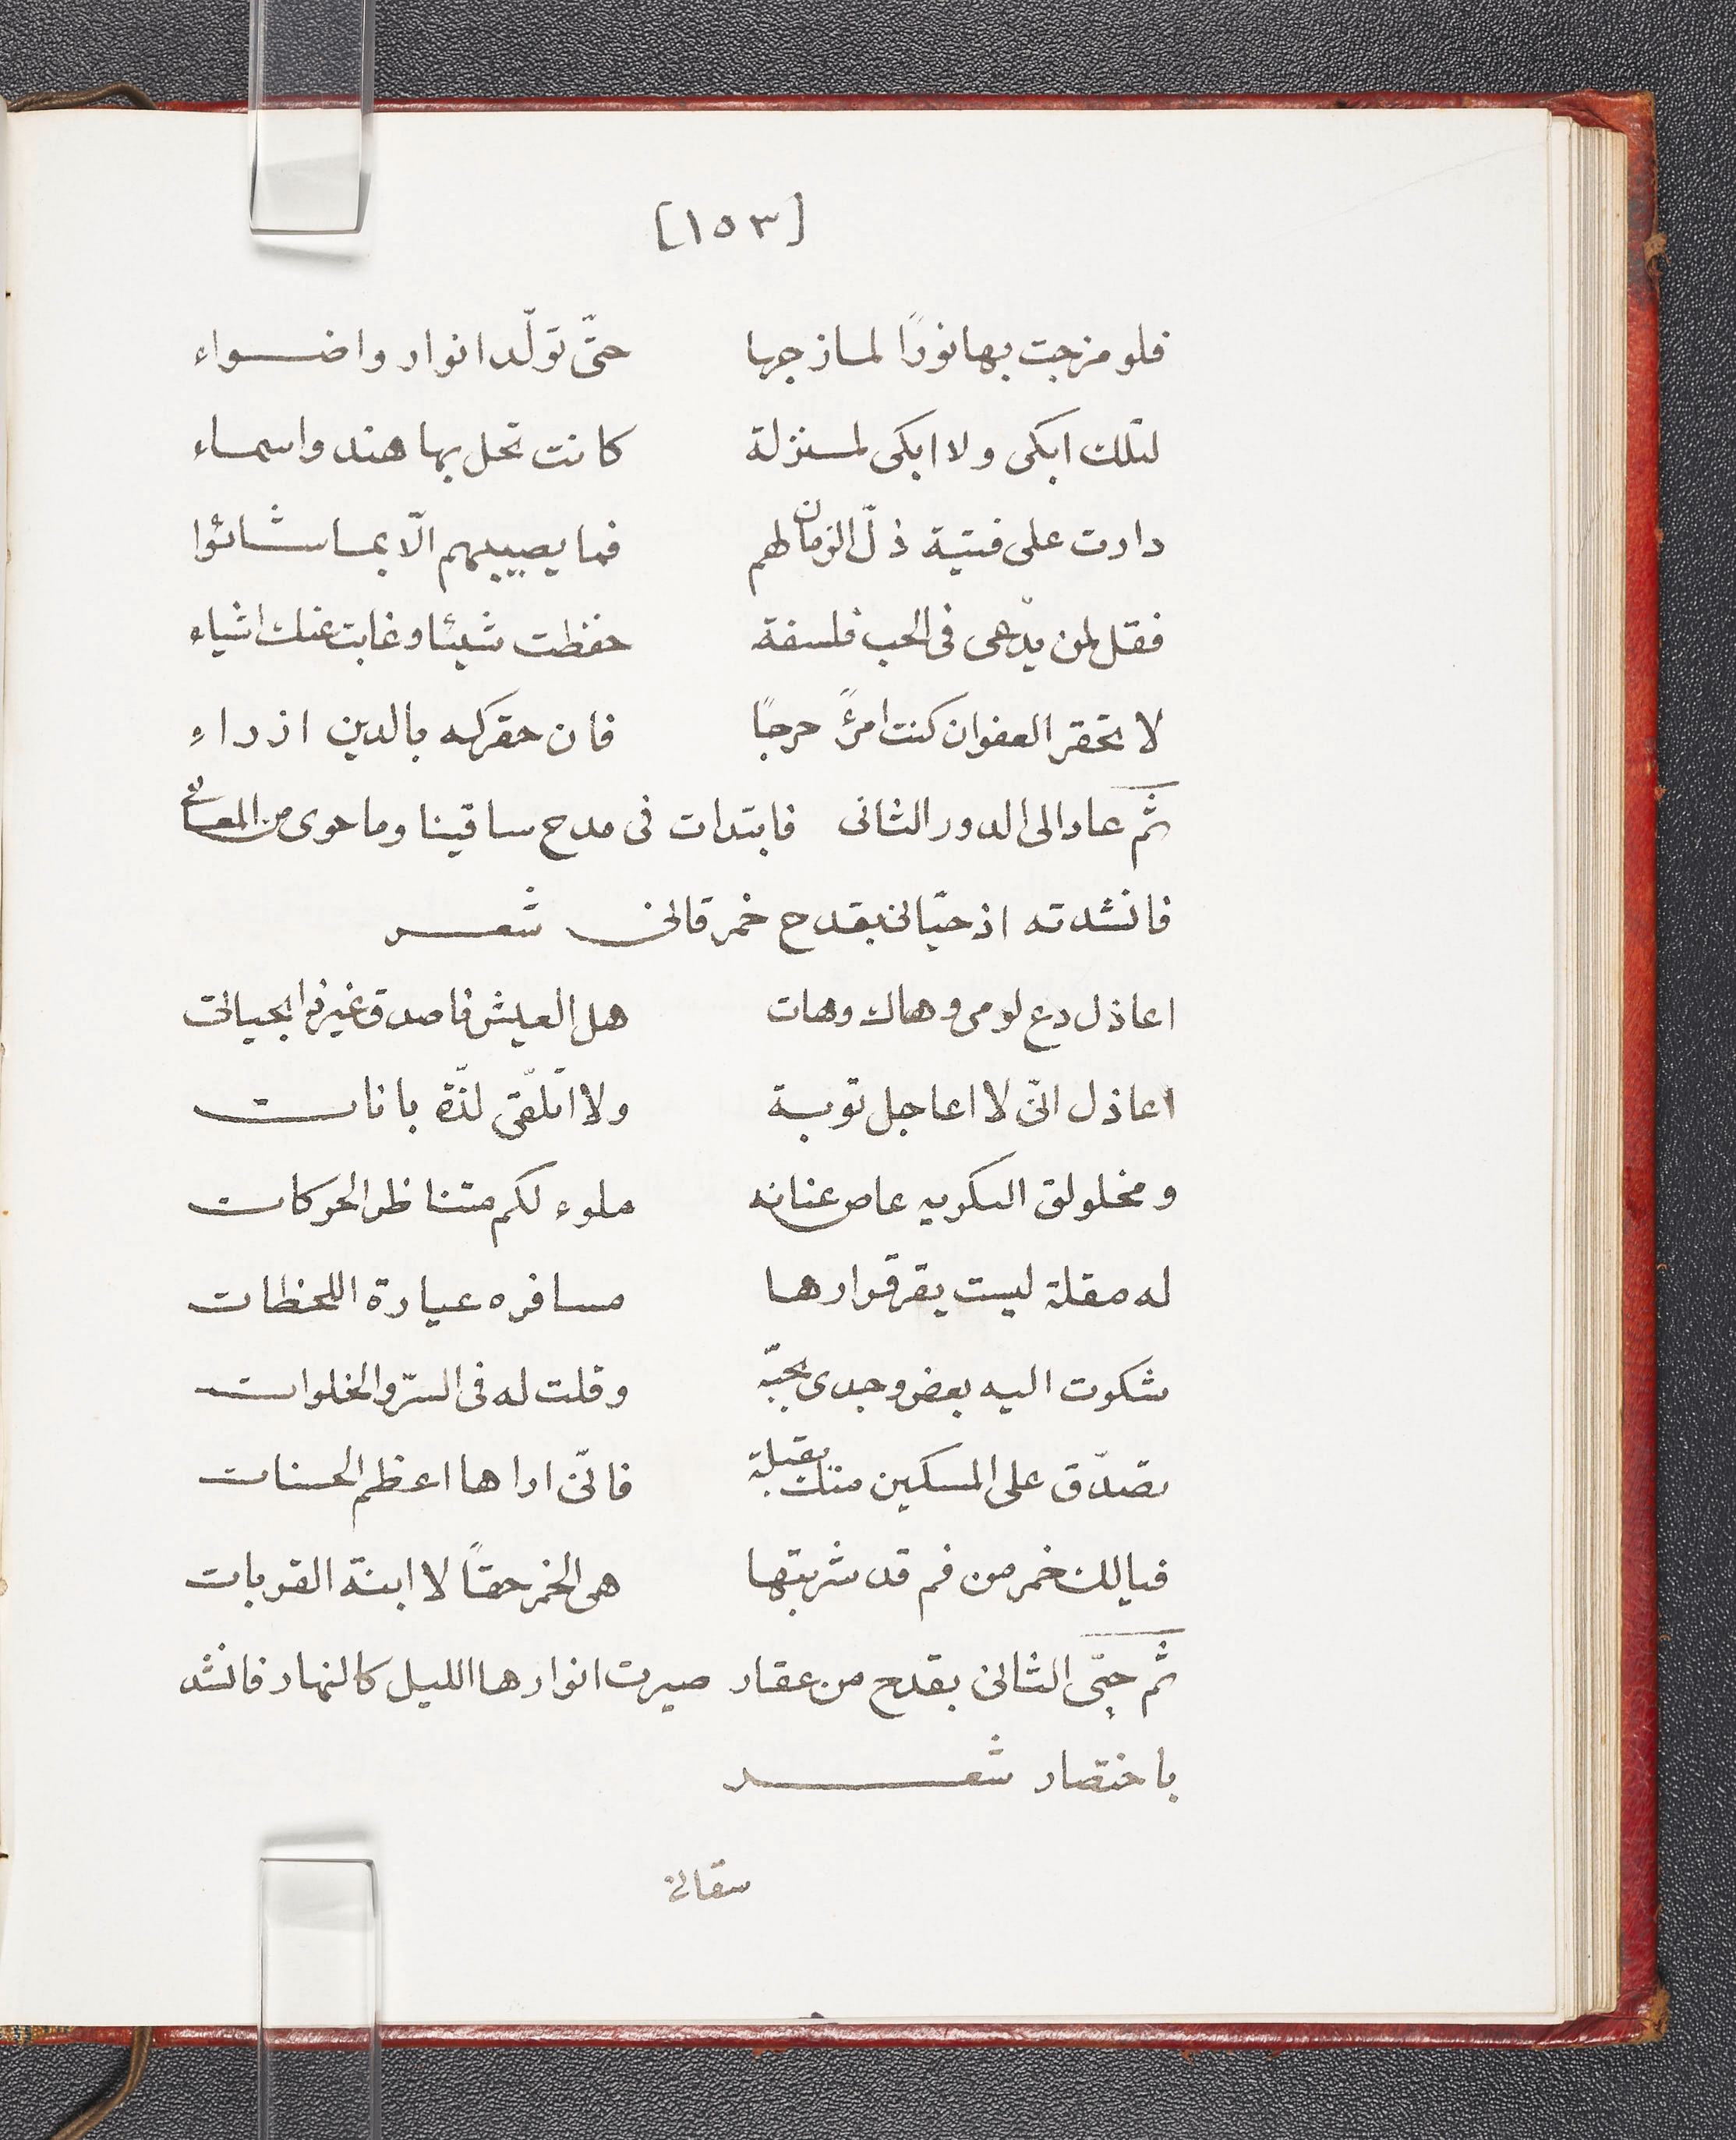 [١٥٣]
فلو مزجت بها نورًا لمازجها حتّى تولّد انوار واضواء
لتلك ابكى ولا ابكى لمنزلة كانت تحل بها هند واسماء
دارت على فتية ذلّ الزمان لهم فما يصيبهم الّا بما شائوا
فقل لمن يدّعى فى الحب فلسفة حفظت شيئا وغابت عنك اشياء
لا تحقر العفو ان كنت امرئً حرجًا فان حقركه بالدين ازراء
ثم عاد الى الدور الثانى فابتدات فى مدح ساقينا وما حوى من المعانى
فانشدته اذ حيّانى بقدح خمر قانى شعر
اعاذل دع لومى وهاك وهات هل العيش فاصدق غير ذا بحياتى
اعاذل انّى لا اعاجل توبة ولا اتلقّى لذّة بانات
ومخلولق السكر به عاص عنانه ملوء لكم متناظر الحركات
له مقلة ليست يقر قرارها مسافره عيارة اللحظات
شكوت اليه بعض وجدى بحبّه وقلت له فى السرّ والخلوات
تصدّق على المسكين منك بقبلة فانّى اراها اعظم الحسنات
فيالك خمر من فم قد شربتها هى الخمر حقاً لا ابنة القربات
ثم حيّى الثانى بقدح من عقار صيرت انوارها الليل كالنهار فانشد
باختصار شعر
سقانى